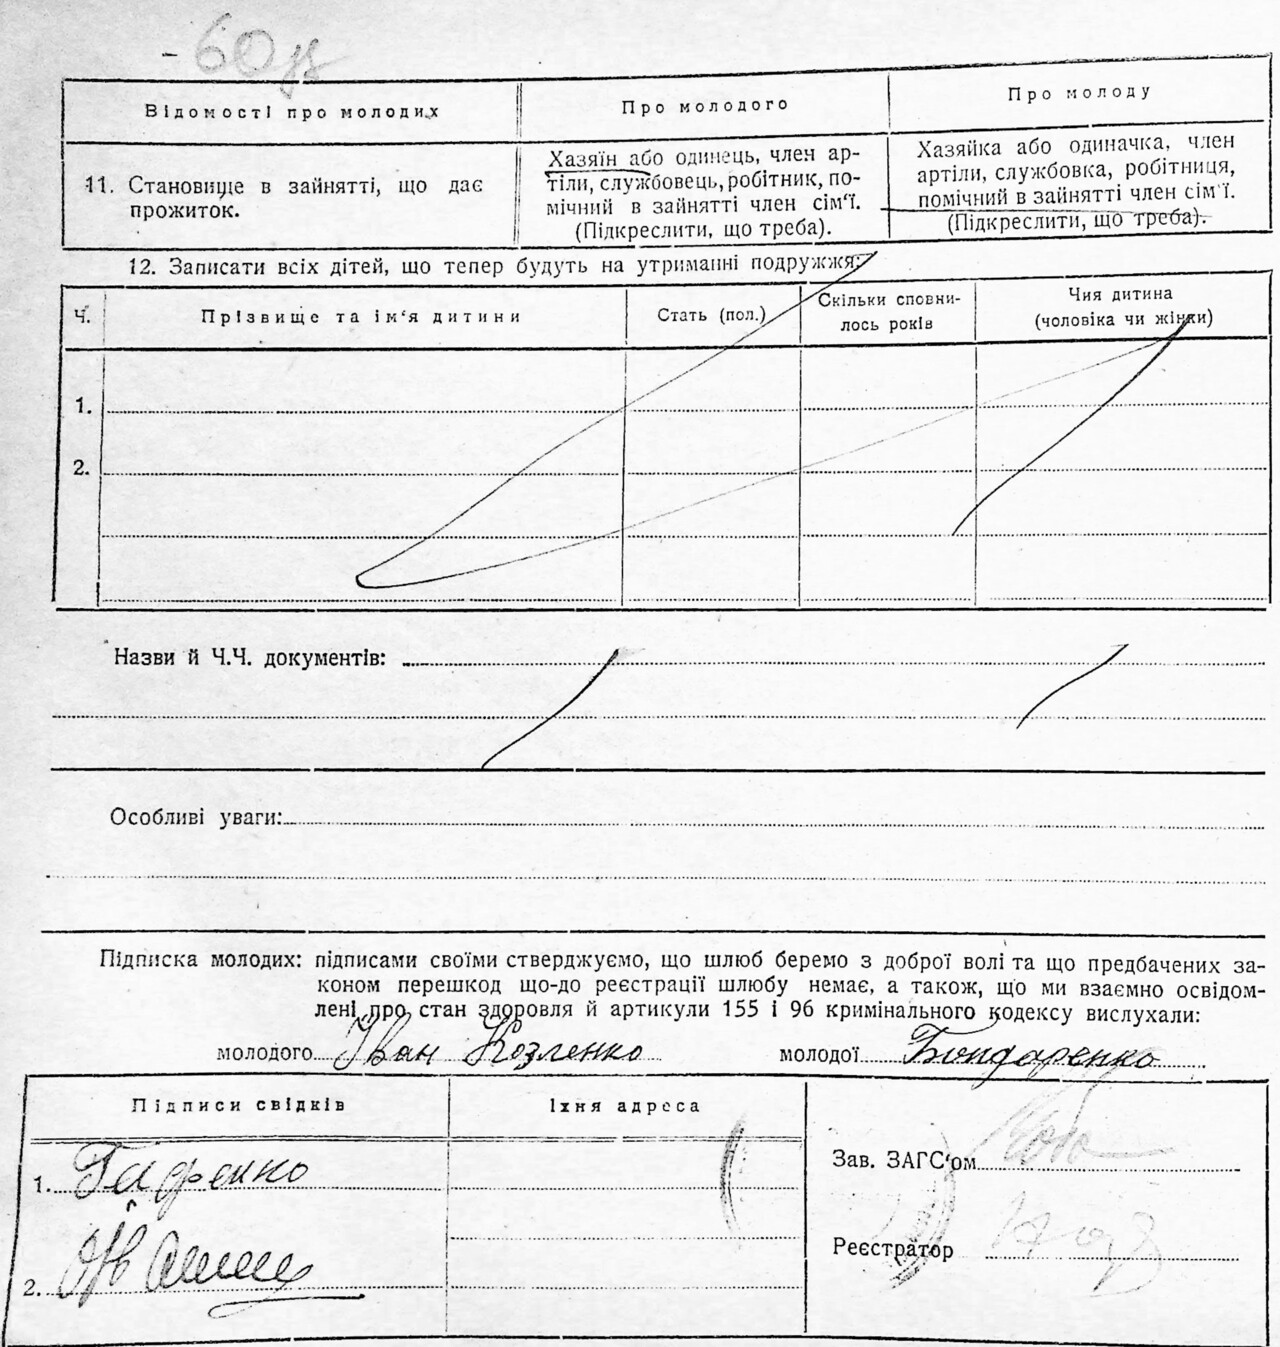 Відомості про молодих
Про молодого
Про молоду
11. Становище в зайнятті, що дає
прожиток.
Хазяїн або одинець, член ар-
тіли, службовець, робітник, по-
мічний в зайнятті член сім'ї.
(Підкреслити, що треба).
Хазяйка або одиначка, член
артіли, службовка, робітниця,
помічний в зайнятті член сім'ї.
(Підкреслити, що треба).
12. Записати всіх дітей, що тепер будуть на утриманні подружжя:
Ч.
Прізвище та ім'я дитини
Стать (пол.)
Скільки сповни-
лось років
Чия дитина
(чоловіка чи жінки)
1.
2.
Назви й Ч.Ч. документів:
Особливі уваги:
Підписка молодих: підписами своїми стверджуємо, що шлюб беремо з доброї волі та що предбачених за-
коном перешкод що-до реєстрації шлюбу немає, а також, що ми взаємно освідом-
лені про стан здоровля й артикули 155 і 96 кримінального кодексу вислухали:
молодого Іван Козленко молодої Бондаренко
Підписи свідків
Їхня адреса
1.
2.
Зав. ЗАГС'ом
Реєстратор